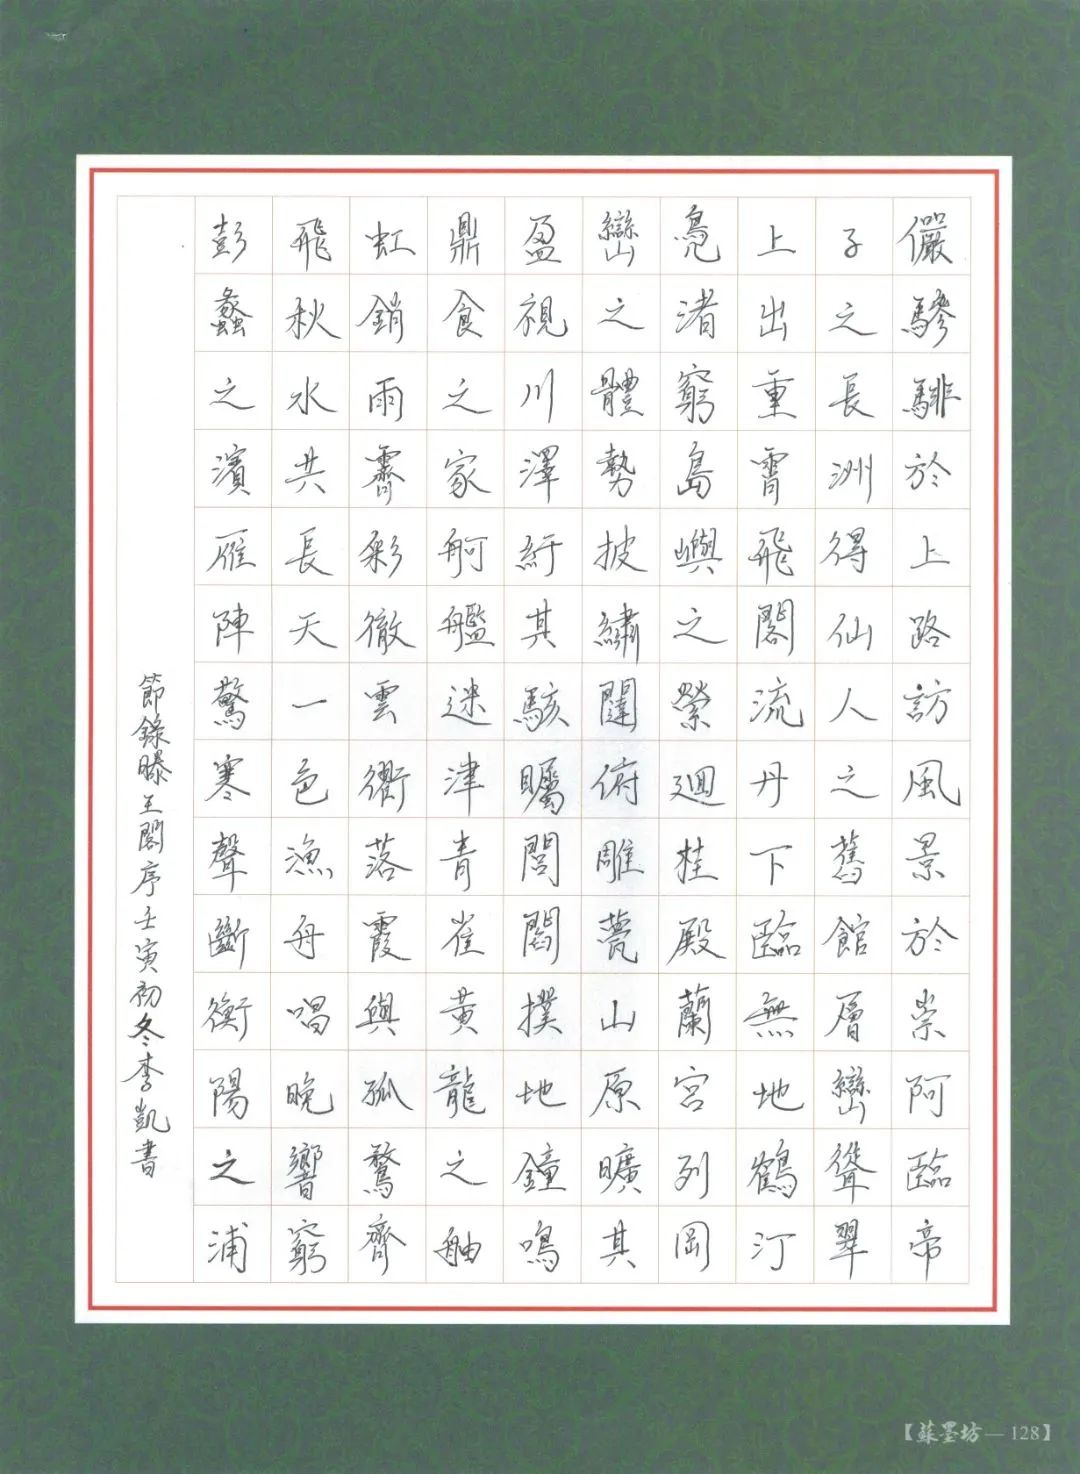 儼驂騑於上路訪風景於崇阿臨帝
子之長洲得仙人之舊館層巒聳翠
上出重霄飛閣流丹下臨無地鶴汀
鳧渚窮島嶼之縈迴桂殿蘭宮列岡
巒之體勢披繡闥俯雕甍山原曠其
盈視川澤紆其駭矚閭閻撲地鐘鳴
鼎食之家舸艦迷津青雀黃龍之舳
虹銷雨霽彩徹雲衢落霞與孤鶩齊
飛秋水共長天一色漁舟唱晚響窮
彭蠡之濱雁陣驚寒聲斷衡陽之浦
節錄滕王閣序壬寅初冬李凱書
【蘇墨坊—128】